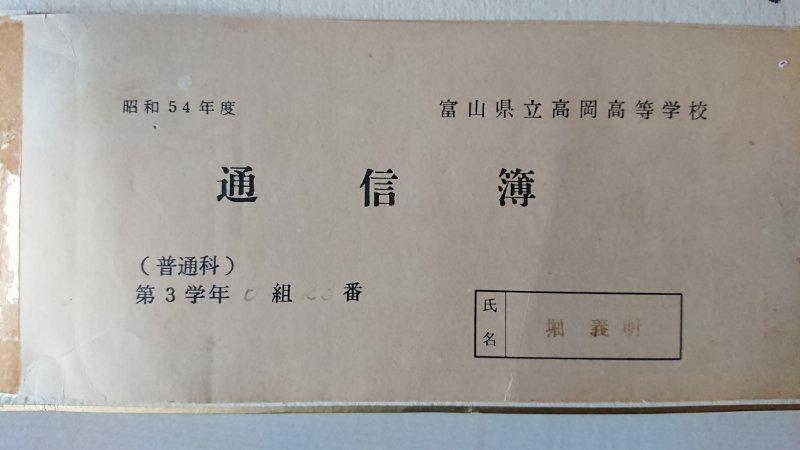 昭和54年度
富山県立高岡高等学校
通信簿
(普通科)
第3学年6組23番
氏名
堀義明